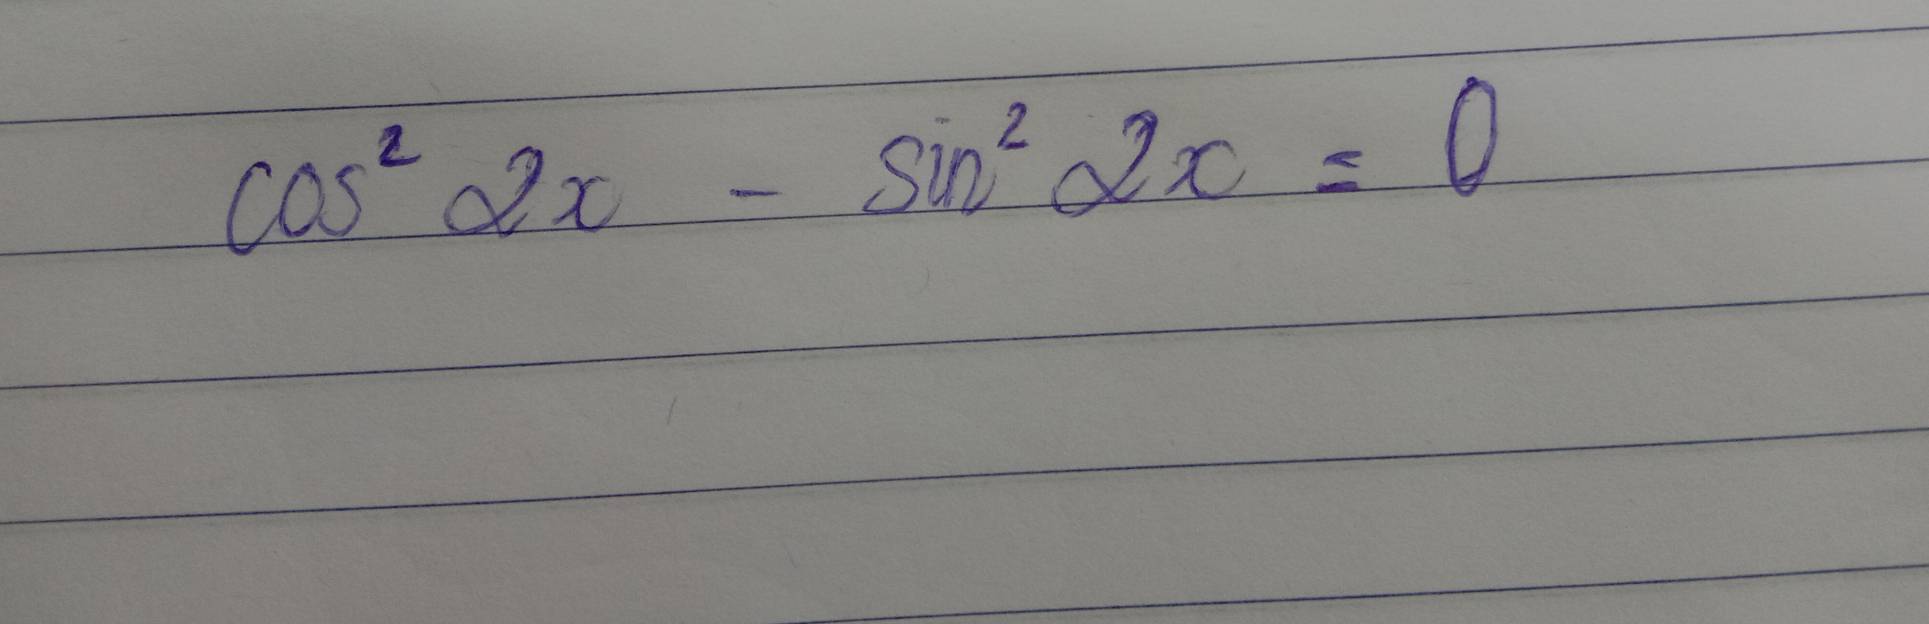 cos² 2x - sin² 2x = 0